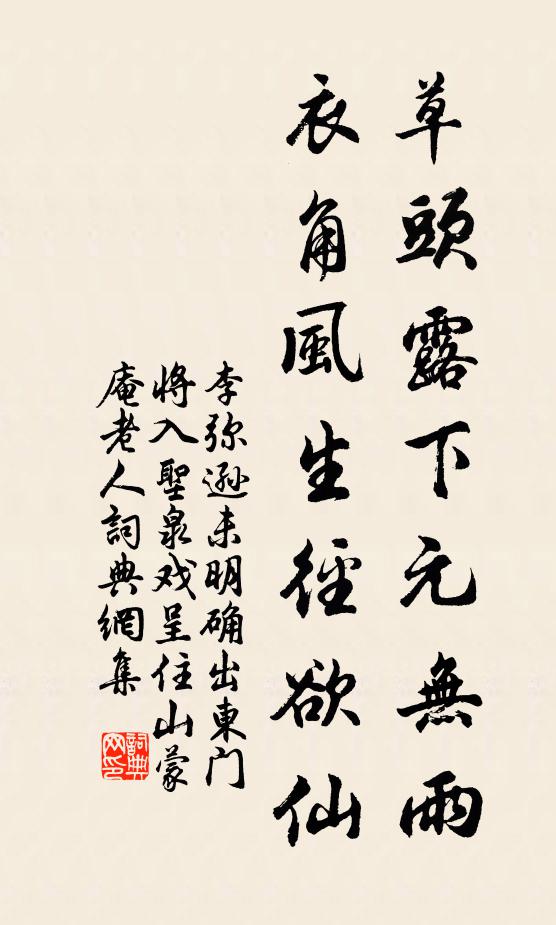 草頭露下元無雨
衣角風生徑欲仙
李弥遜未明确出東门
将入聖泉戏呈住山蒙
庵老人詞典網集
詞典网印